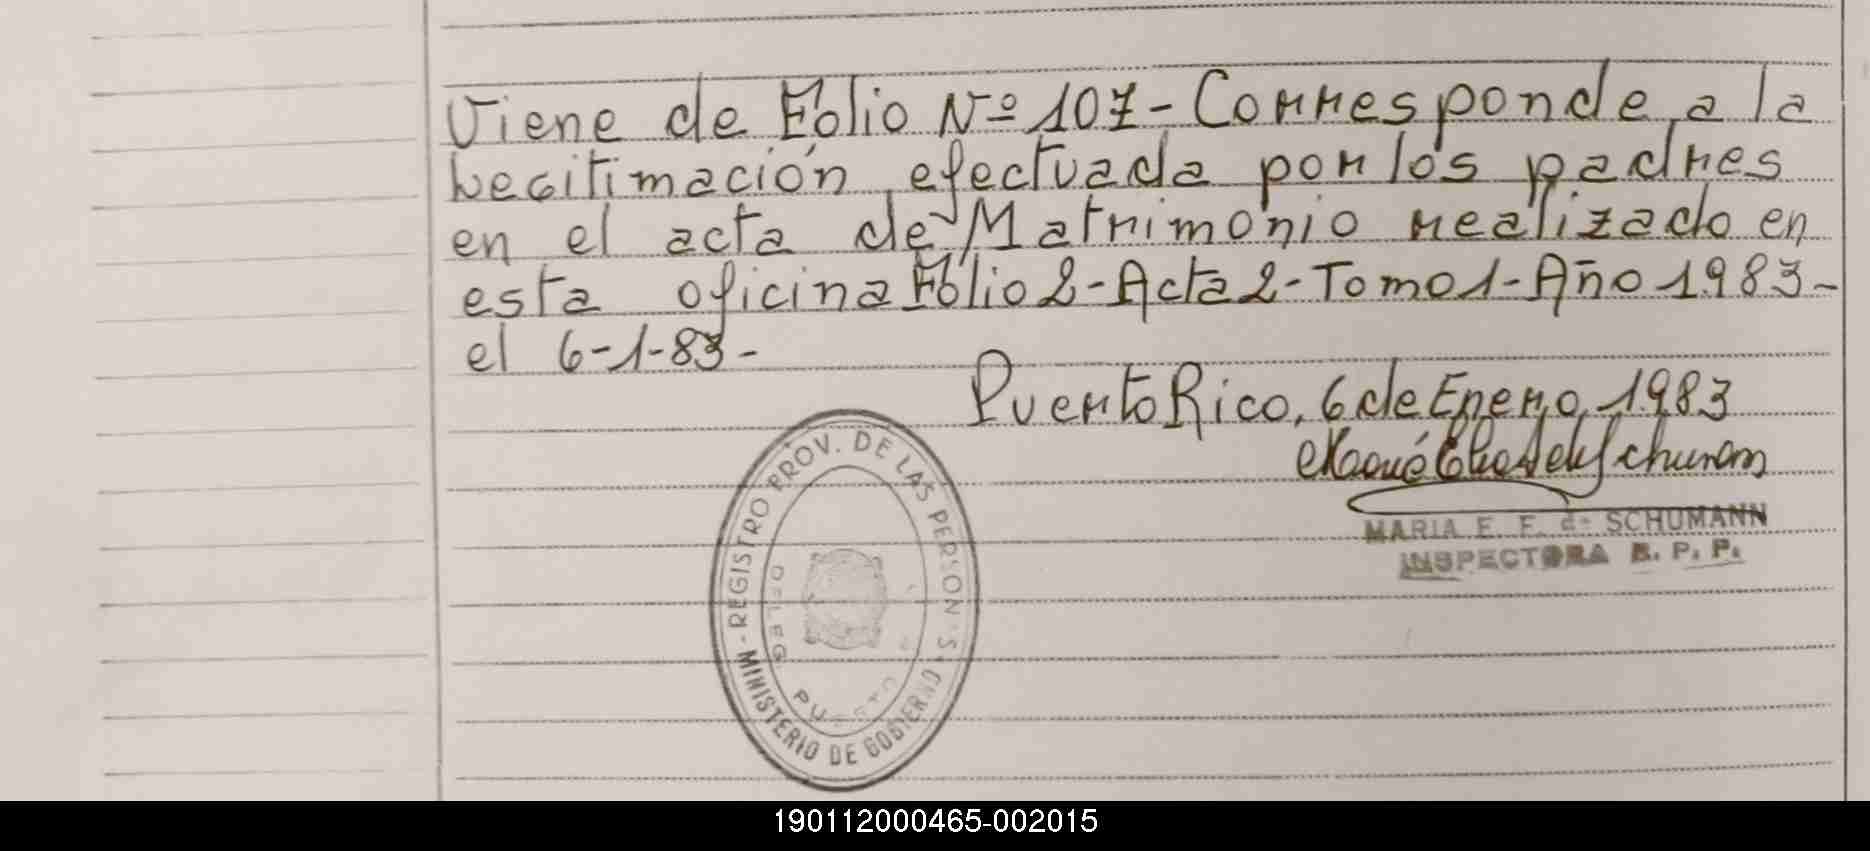 Viene de Folio Nº 107-Corresponde a la
Legitimación efectuada por los padres
en el acta de Matrimonio realizado en
esta oficina Folio 2-Acta 2-Tomo 1-Año 1983-
el 6-1-83-
Puerto Rico, 6 de Enero, 1983
MARIA E. F. de SCHUMANN
INSPECTORA R. P. P.
M-REGISTRO PROV. DE LAS PERSONAS
MINISTERIO DE GOBIERNO
DELEG
PUERTO
190112000465-002015